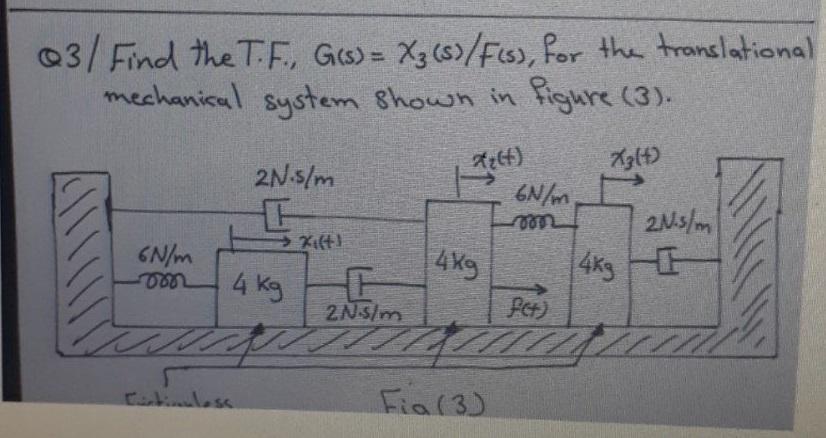 Q3/ Find the T.F., G(s) = X3(s)/F(s), for the translational
mechanical system shown in figure (3).
x2(t)
x3(t)
2N.s/m
6N/m
2N.s/m
x1(t)
6N/m
4 Kg
4Kg
4Kg
2N.s/m
f(t)
Frictionless
Fig(3)